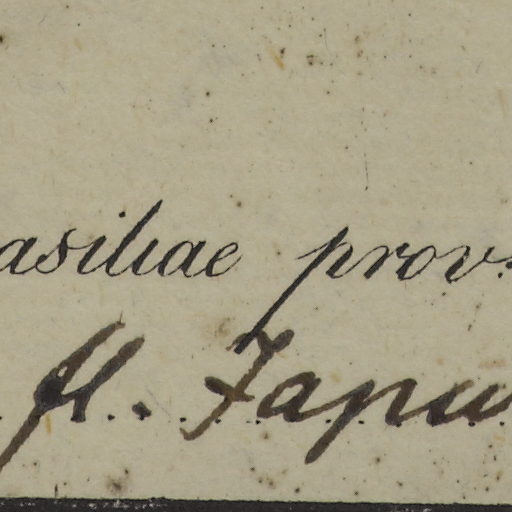 asiliae prov.
fl. Japu